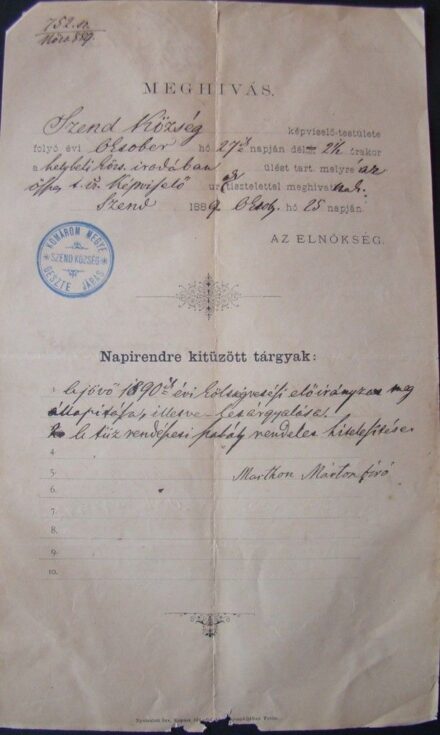 752. sz.
889.
MEGHIVÁS.
Szend Község képviselő-testülete
folyó évi October hó 27ik napján dél 2½ órakor
a helybeli közs. irodában ülést tart, melyre az
össz. t. cz. képviselő ur tisztelettel meghivatnak.
Szend 1889. Octob. hó 25 napján.
AZ ELNÖKSÉG.
KOMÁROM MEGYE
SZEND KÖZSÉG
GESZTE JÁRÁS
Napirendre kitüzött tárgyak:
1. A jövő 1890ik évi költségvetési előirányzat meg
állapitása, illetve letárgyalása.
2. A tüz rendészeti szabály rendelet hitelesitése
4.
5. Marthon Márton biró
6.
7.
8.
9.
10.